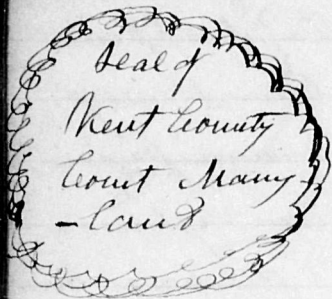 Seal of
Kent County
Court Mary
-land